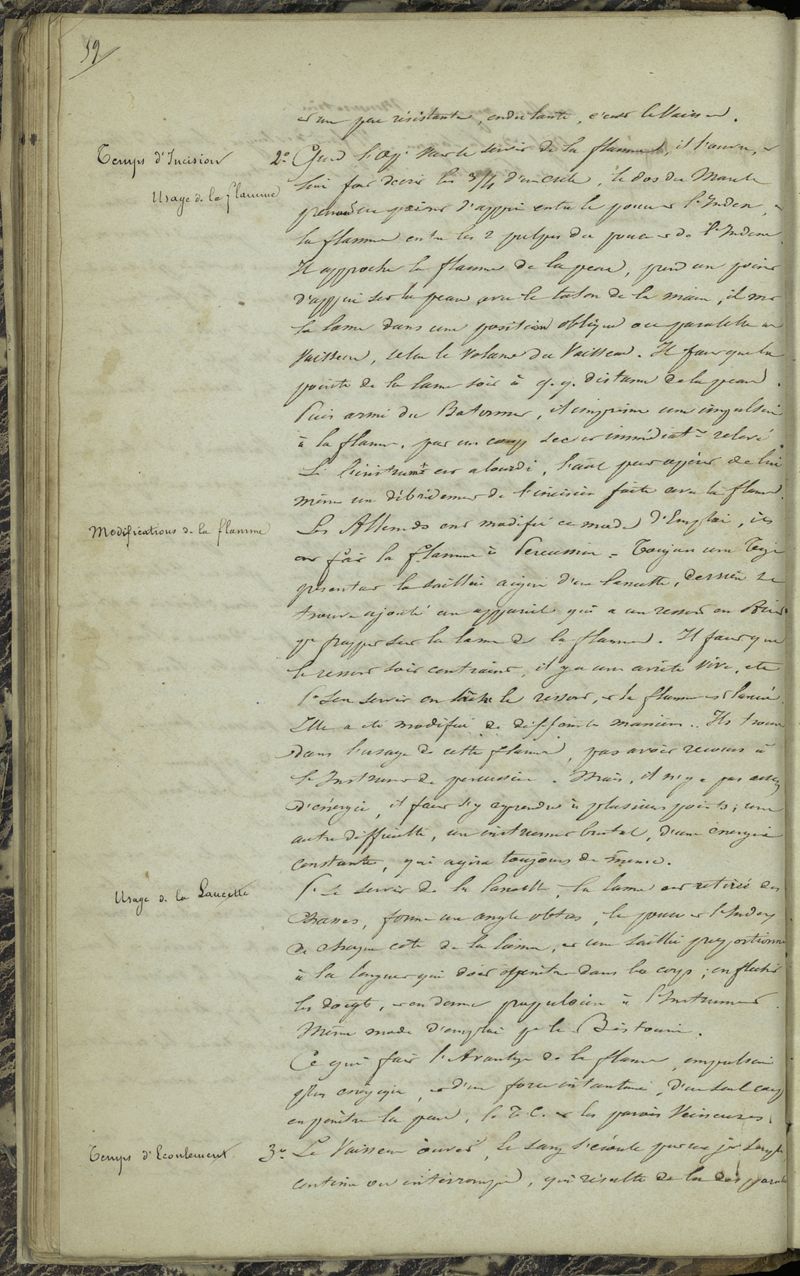 59
une peu résistante, ondulante, c'est le Vaisseau.
Temps d'Incision
2° Quand l'Op. veut se servir de la flamme, il l'ouvre,
Usage de la flamme
lui fait décrire les 3/4 d'un cercle, le dos du Manche
prend un point d'appui entre le pouce et l'Index,
la flamme entre les 2 pulpes du pouce et de l'Index.
Il approche la flamme de la peau, prend un point
d'appui sur la peau avec le talon de la main, il met
la lame dans une position oblique ou parallèle au
Vaisseau, selon le volume du Vaisseau. Il faut que la
pointe de la lame soit à q.q. distance de la peau.
Puis armé du Batonnet, il imprime une impulsion
à la flamme, par un coup sec et immédiat.t relevé
Si l'instrumt est alourdi, il peut opérer de lui
même un débridement de l'incision faite avec la flamme
Modifications de la flamme
Les Allemds ont modifié ce mode d'Emploi, ils
ont fait la flamme à Percussion = Toujours une Tige
présentant la saillie aigue d'une lancette, derrière se
trouve ajouté un appareil qui a un ressort en
pr frapper sur la lame de la flamme. Il faut que
le ressort soit contraint, il y a une arrête vive, etc
Pr s'en servir on lâche le ressort, et la flamme est lancée
Elle a été modifiée de différente manière. Ils trouvent
dans l'usage de cette flamme, pas avoir recours à
l'Instrumt de percussion. Mais, il n'y a pas assez
d'énergie, il faut s'y reprendre à plusieurs points; une
autre difficulté, un instrument brutal, d'une énergie
constante, qui agira toujours de même.
Usage de la Lancette
Pr se servir de la lancette, la lame est retirée des
Chasses, forme un angle obtus, le pouce et l'Index
de chaque côté de la lame, et une saillie proportionnée
à la longueur qui doit pénétrer dans les corps; on fléchit
les doigts, et on donne propulsion à l'Instrument
Même mode d'emploi qe le Bistouri.
Ce qui fait l'Avantage de la flamme, impulsion
plus énergique, et d'une force instantanée, d'un seul coup
on pénètre la peau, le T.C. et les parois Veineuses.
Temps d'Ecoulement
3° Le Vaisseau ouvert, le sang s'écoule par un jet
continu ou interrompu, qui résulte de la